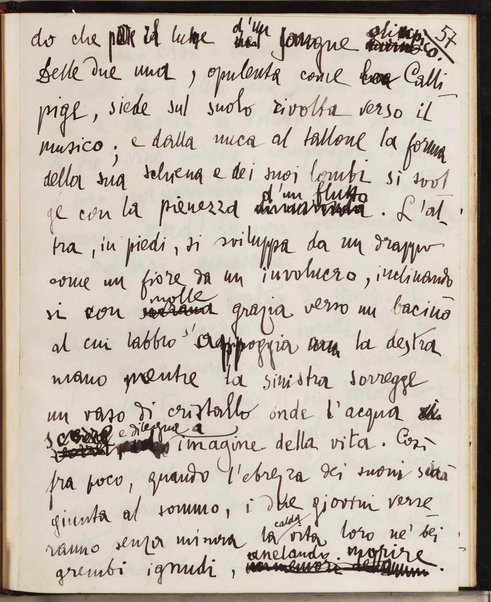 57
do che più il lume d'un sangue olimpico.
Delle due una, opulenta come Calli
pige, siede sul suolo rivolta verso il
musico; e dalla nuca al tallone la forma
della sua schiena e dei suoi lombi si svol
ge con la pienezza d'un flutto. L'al-
tra, in piedi, si sviluppa da un drappo
come un fiore da un involucro, inclinando
si con molle grazia verso un bacino
al cui labbro s'appoggia la destra
mano mentre la sinistra sorregge
un vaso di cristallo onde l'acqua
e dilegua a imagine della vita. Così
fra poco, quando l'ebrezza dei suoni sarà
giunta al sommo, i due giovini verse
ranno senza misura la calda vita loro ne' bei
grembi ignudi, anelando morire.